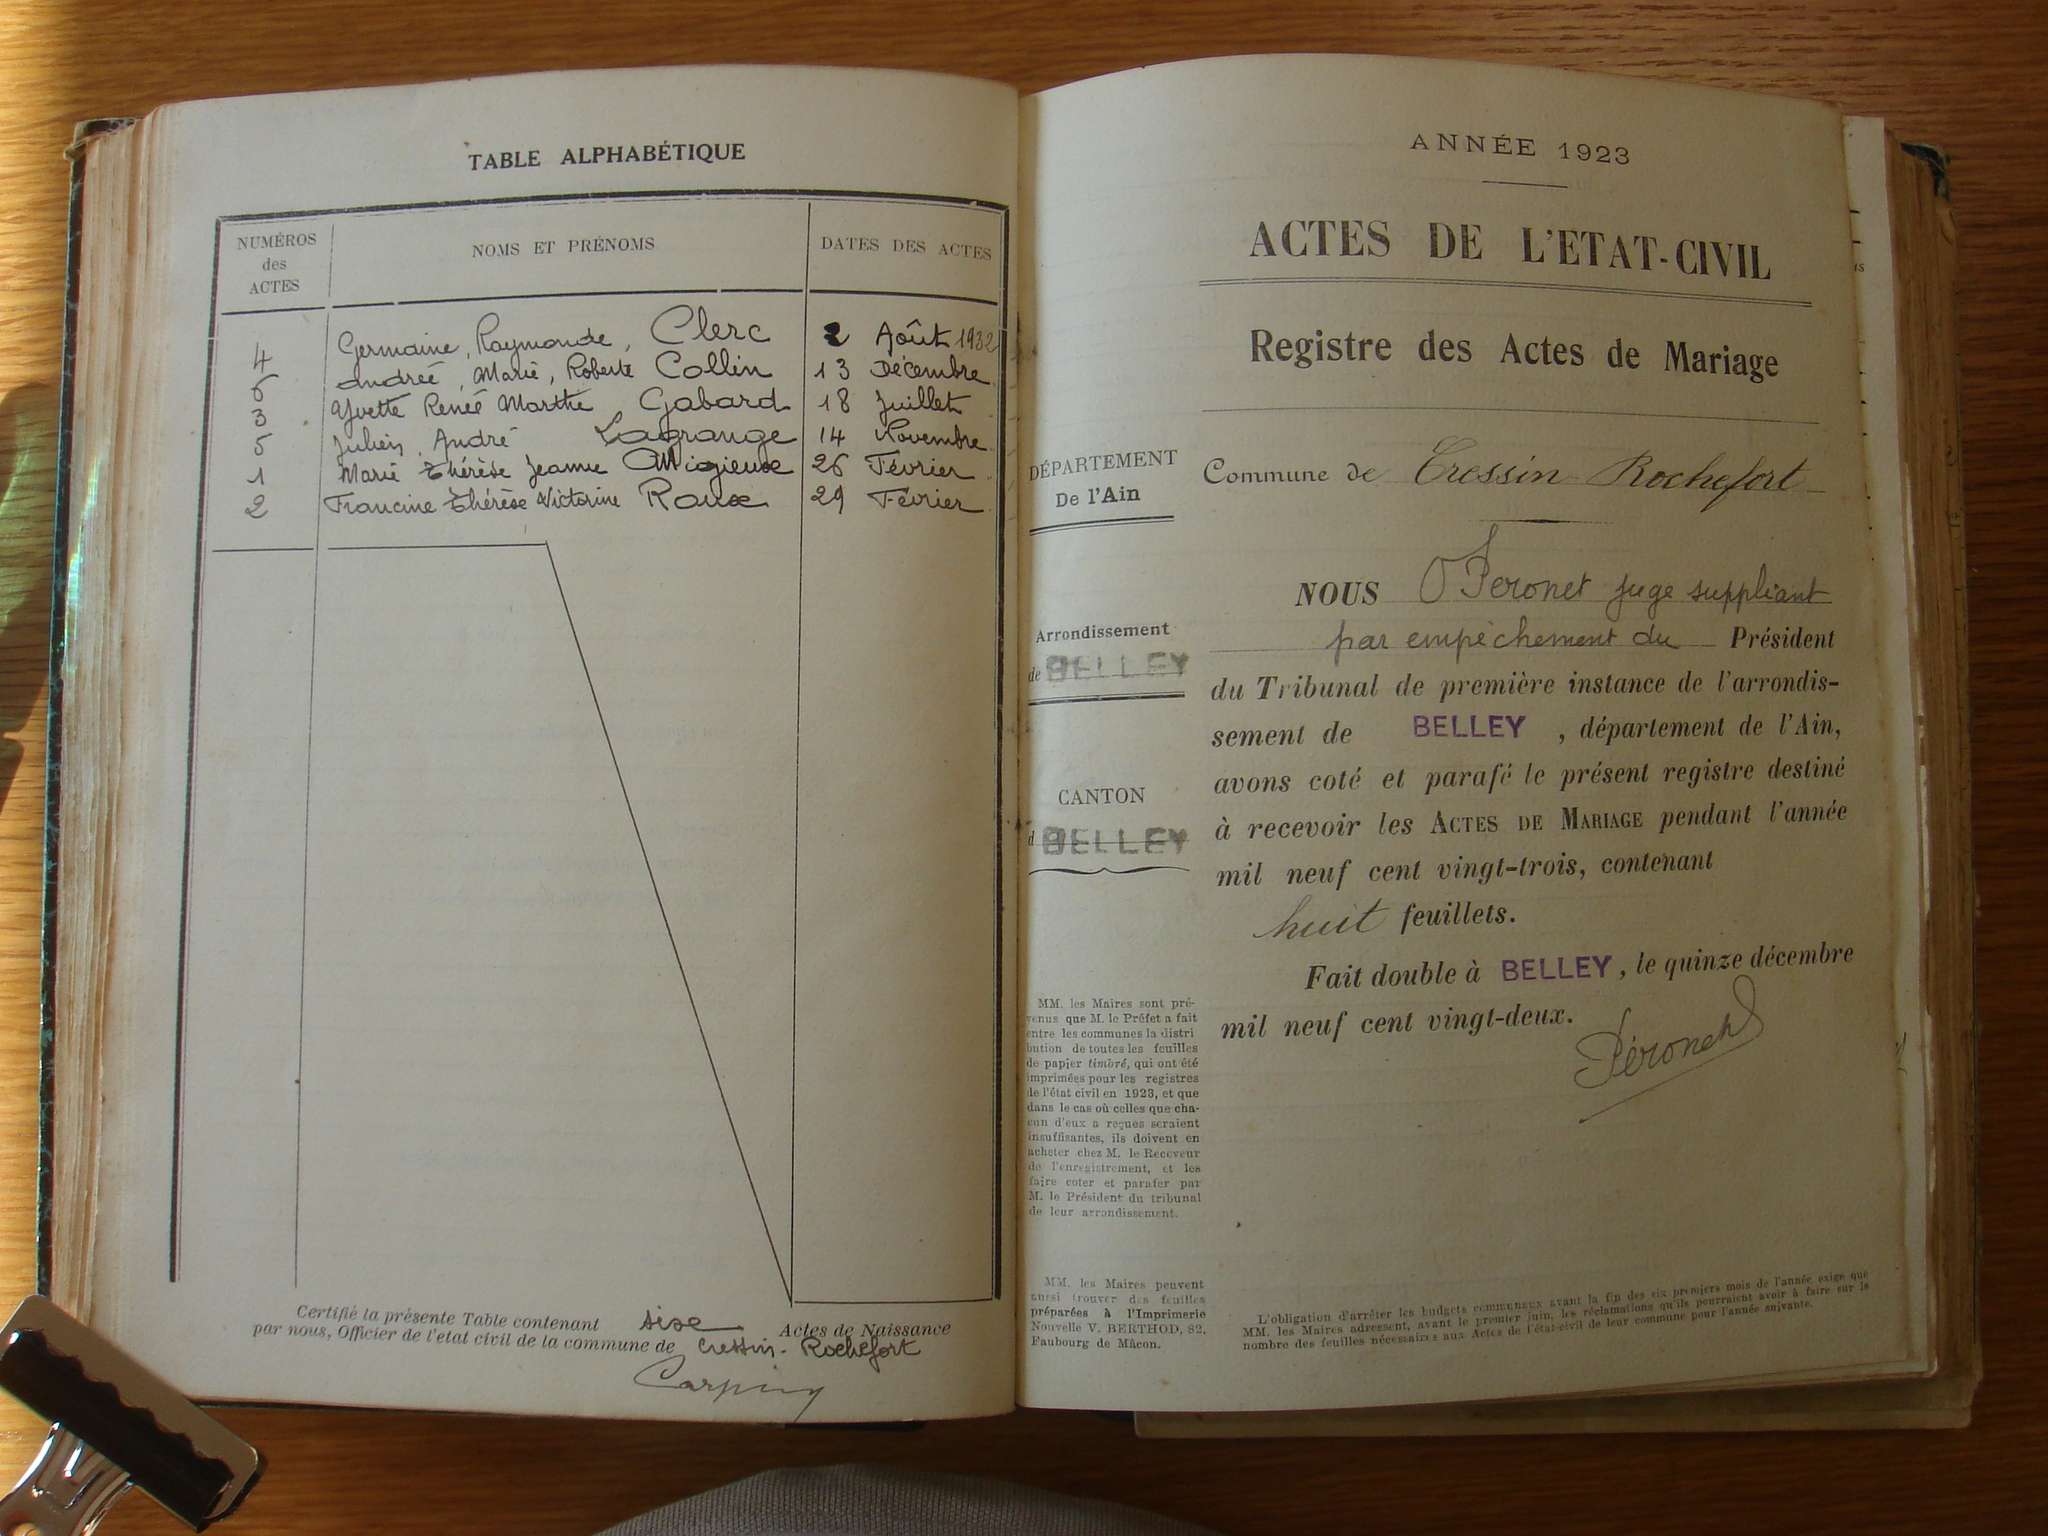 TABLE ALPHABÉTIQUE
NUMÉROS des ACTES NOMS ET PRÉNOMS DATES DES ACTES
4 Germaine, Raymonde, Clerc 2 Août 1932
6 Andréé, Marie, Roberte Collin 13 Décembre
3 Yvette Renée Marthe Gabard 18 Juillet
5 Julien, André Lagrange 14 Novembre
1 Marie Thérèse Jeanne Migieux 26 Février
2 Francine Thérèse Victorine Roux 29 Février
Certifié la présente Table contenant sixe Actes de Naissance
par nous, Officier de l'etat civil de la commune de Cressin-Rochefort
ANNÉE 1923
ACTES DE L'ETAT-CIVIL
Registre des Actes de Mariage
DÉPARTEMENT
De l'Ain
Commune de Cressin Rochefort
Arrondissement
de BELLEY
CANTON
d BELLEY
NOUS Peronet juge suppliant
par empêchement du Président
du Tribunal de première instance de l'arrondis-
sement de BELLEY, département de l'Ain,
avons coté et parafé le présent registre destiné
à recevoir les ACTES DE MARIAGE pendant l'année
mil neuf cent vingt-trois, contenant
huit feuillets.
Fait double à BELLEY, le quinze décembre
mil neuf cent vingt-deux.
Péronet
MM. les Maires sont pré-
venus que M. le Préfet a fait
entre les communes la distri
bution de toutes les feuilles
de papier timbré, qui ont été
imprimées pour les registres
de l'état civil en 1923, et que
dans le cas où celles que cha-
cun d'eux a reçues seraient
insuffisantes, ils doivent en
acheter chez M. le Receveur
de l'enregistrement, et les
faire coter et parafer par
M. le Président du tribunal
de leur arrondissement.
MM. les Maires peuvent
aussi trouver des feuilles
préparées à l'Imprimerie
Nouvelle V. BERTHOD, 82,
Faubourg de Mâcon.
L'obligation d'arrêter les budgets communaux avant la fin des six premiers mois de l'année exige que
MM. les Maires adressent, avant le premier juin, les réclamations qu'ils pourraient avoir à faire sur le
nombre des feuilles nécessaires aux Actes de l'état-civil de leur commune pour l'année suivante.